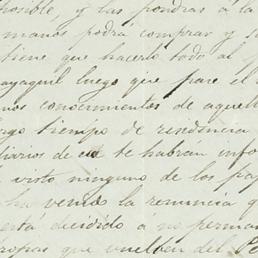 posible, y las pondras á la
manos podrá comprar y s
tiene que hacerlo todo al
ayaquil luego que pase el
nos conocimientos de aquel
rgo tiempo de residencia
diarios de te habrán info
visto ninguno de los pa
ha venido la renuncia q
está decidido á no perman
tropas que vuelvan del Pe